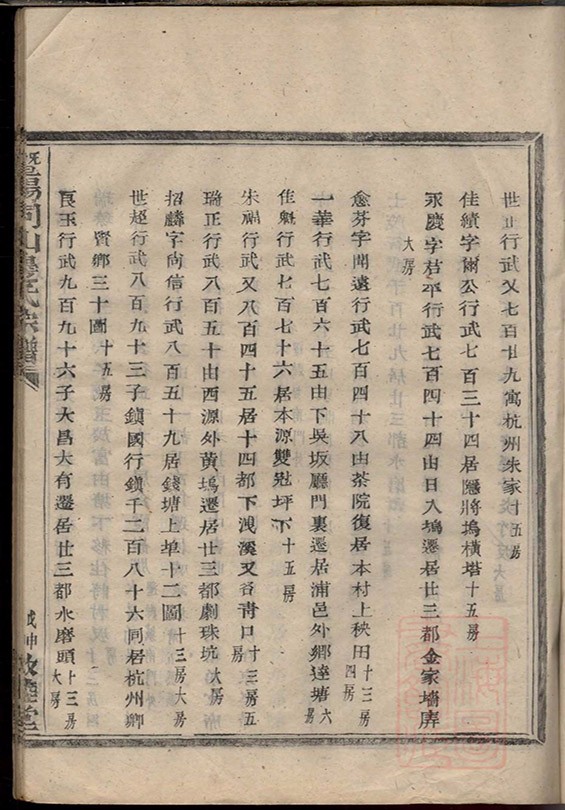 世正行武又七百廿九寓杭州朱家十五房
佳績字爾公行武七百三十四居隱將塢橫塔十五房
永慶字茂平行武七百四十四由日入塢遷居廿三都金家墻屏
大房
愈芬字聞遠行武七百四十八由茶院復居本村上秧田十三房
四房
一華行武七百六十五由下吳坂廳門裏遷居浦邑外鄉達塘六
房
佳魁行武七百七十六居本源雙冠坪下十五房
朱福行武又八百四十五居十四都下溲溪又谷靑口十三房五
房
瑞正行武八百五十由西源外黃塢遷居廿三都劇珠坑大房
招麟字尚信行武八百五十九居錢塘上埠十二圖十三房大房
世超行武八百九十三子鎮國行鎮千二百八十六同居杭州鄉
賢鄉三十圖十五房
良玉行武九百九十六子大昌大有遷居廿三都水磨頭十三房
大房
暨陽同山湯氏宗譜
戊申 敦睦堂